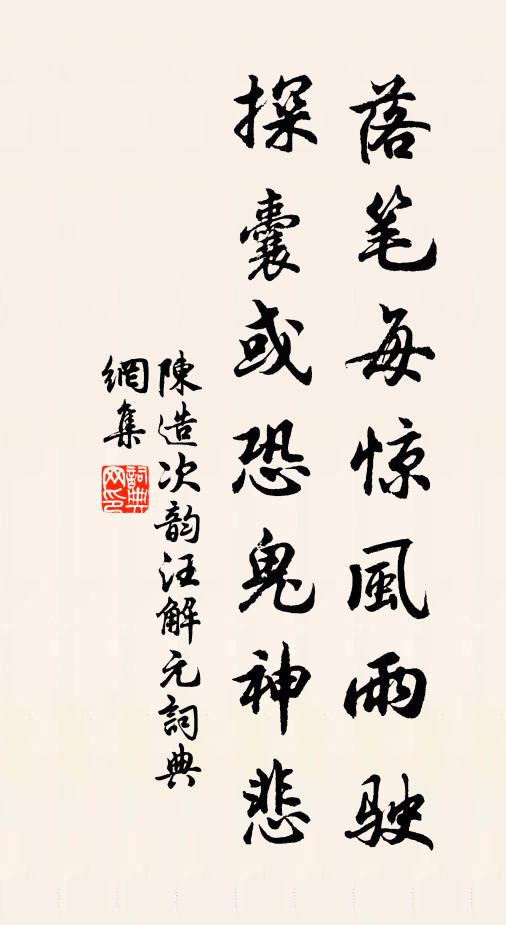 落笔每惊風雨駛
探囊或恐鬼神悲
陳造次韵汪解元詞典
網集
詞典網印